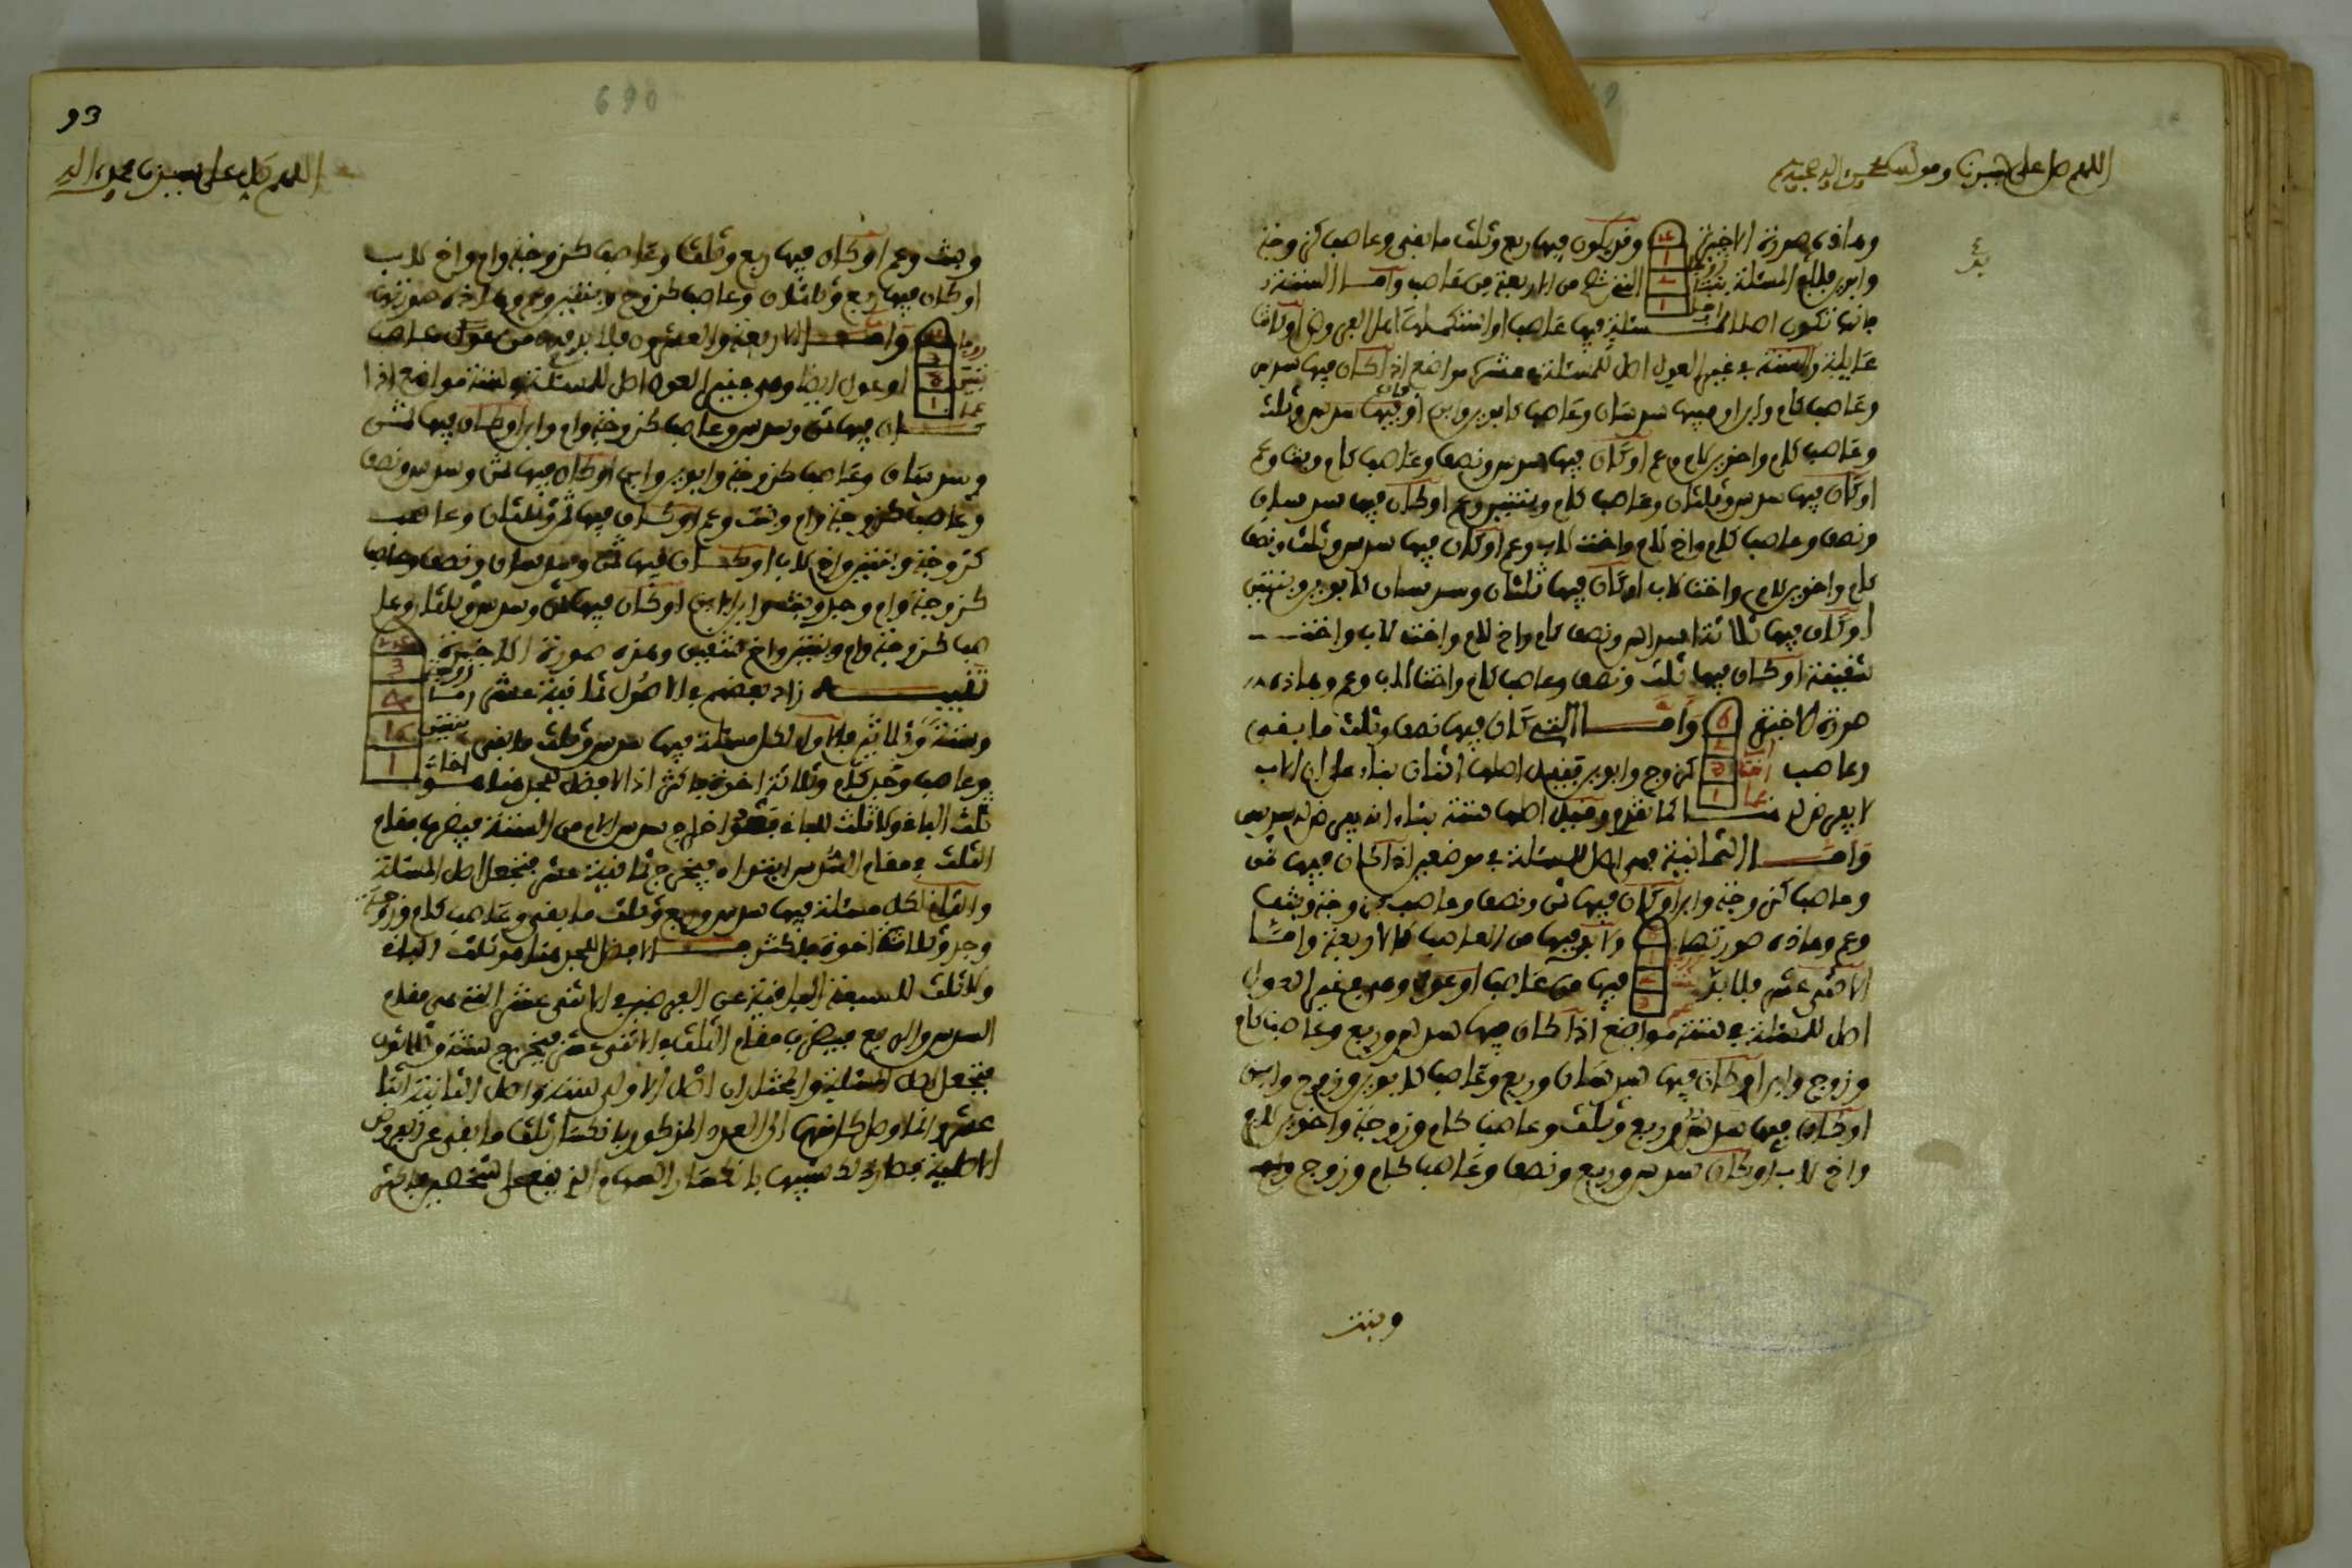 اللهم صل على سيدنا ومولانا محمد واله وصحبه
وهاذه صورة الاخيرة وقد يكون فيها ربع وثلث ما بقي وعاصب كزوجة
وابوين فلابد للمسئلة من الاربعة من عاصب واما الستة
فانها تكون اصلا للمسئلة فيها عاصب او استكملت اهل الفروض او كانت
عايلة والستة في غير العول اصل للمسئلة في عشرة مواضع اذا كان فيها سدس
وعاصب كام وابن او فيها سدسان وعاصب كابوين وابن او كان فيها سدس وثلث
وعاصب كام واخوين لام وعم او كان فيها سدس ونصف وعاصب كام وبنت وعم
او كان فيها سدس وثلثان وعاصب كام وبنتين وعم او كان فيها سدسان
ونصف وعاصب كام واخ لام واخت لاب وعم او كان فيها سدس وثلث ونصف
كام واخوين لام واخت لاب او كان فيها ثلثان وسدسان كابوين وبنتين
او كان فيها ثلاثة اسداس ونصف كام واخ لام واخت لاب واخت
شقيقة او كان فيها ثلث ونصف وعاصب كام واخت لاب وعم وهاذه
صورة الاخيرة واما التي كان فيها نصف وثلث ما بقي
وعاصب كزوج وابوين فقيل اصلها اثنان بناء على ان الاب
لا يفرض له كما تقدم وقيل اصلها ستة بناء انه يفرض له سدس
واما الثمانية فهي اصل للمسئلة في موضعين اذا كان فيها ثمن
وعاصب كزوجة وابن او كان فيها ثمن ونصف وعاصب كزوجة وبنت
وعم وهاذه صورتها ولابد فيها من العاصب كالاربعة واما
الاثنى عشر فلابد فيها من عاصب او عول وهي في غير العول
اصل للمسئلة في ستة مواضع اذا كان فيها سدس وربع وعاصب كام
وزوج وابن او كان فيها سدسان وربع وعاصب كابوين وزوج وابن
او كان فيها سدس وربع وثلث وعاصب كام وزوجة واخوين لام
واخ لاب او كان سدس وربع ونصف وعاصب كام وزوج
وبنت
93
690
اللهم صل على سيدنا محمد واله
وبنت وعم او كان فيها ربع وثلث وعاصب كزوجة وام واخ لاب
او كان فيها ربع وثلثان وعاصب كزوج وبنتين وعم وهاذه صورتها
واما الاربعة والعشرون فلابد فيها من عاصب
او عول ايضا وهي في غير العول اصل للمسئلة في ستة مواضع اذا
كان فيها ثمن وسدس وعاصب كزوجة وام وابن او كان فيها ثمن
وسدسان وعاصب كزوجة وابوين وابن او كان فيها ثمن وسدس ونصف
وعاصب كزوجة وام وبنت وعم او كان فيها ثمن وثلثان وعاصب
كزوجة وبنتين واخ لاب او كان فيها ثمن وسدسان ونصف وعاصب
كزوجة وام وجد وبنت وابن ابن او كان فيها ثمن وسدس وثلثان وعا
صب كزوجة وام وبنتين واخ شقيق وهذه صورة الاخيرة
تنبيه زاد بعضهم في الاصول ثمانية عشر
وستة وثلاثين فالاول لكل مسئلة فيها سدس وثلث ما بقي
وعاصب وجد كام وثلاثة اخوة فاكثر اذ الافضل للجد هنا هو
ثلث الباقي ولا ثلث للباقي بعد اخراج سدس الام من الستة فيضرب مقام
الثلث في مقام السدس فيخرج ثمانية عشر فتجعل اصل المسئلة
والثاني لكل مسئلة فيها سدس وربع وثلث ما بقي وعاصب كام وزوجة
وجد وثلاثة اخوة فاكثر الافضل للجد هنا هو ثلث الباقي
ولا ثلث للسبعة الباقية عن الفرضين في الاثنى عشر التي هي مقام
السدس والربع فيضرب مقام الثلث في الاثنى عشر فيخرج ستة وثلاثون
فتجعل اصل المسئلة والمختار ان اصل الاولى ستة واصل الثانية اثنا
عشر وانما وصل كل منهما الى العدد المذكور بانكسار ثلث ما بقي عن الفروض
الاصلية فصار ذلك شبيها بانكسار السهام الذي يقع على شخصين فاكثر